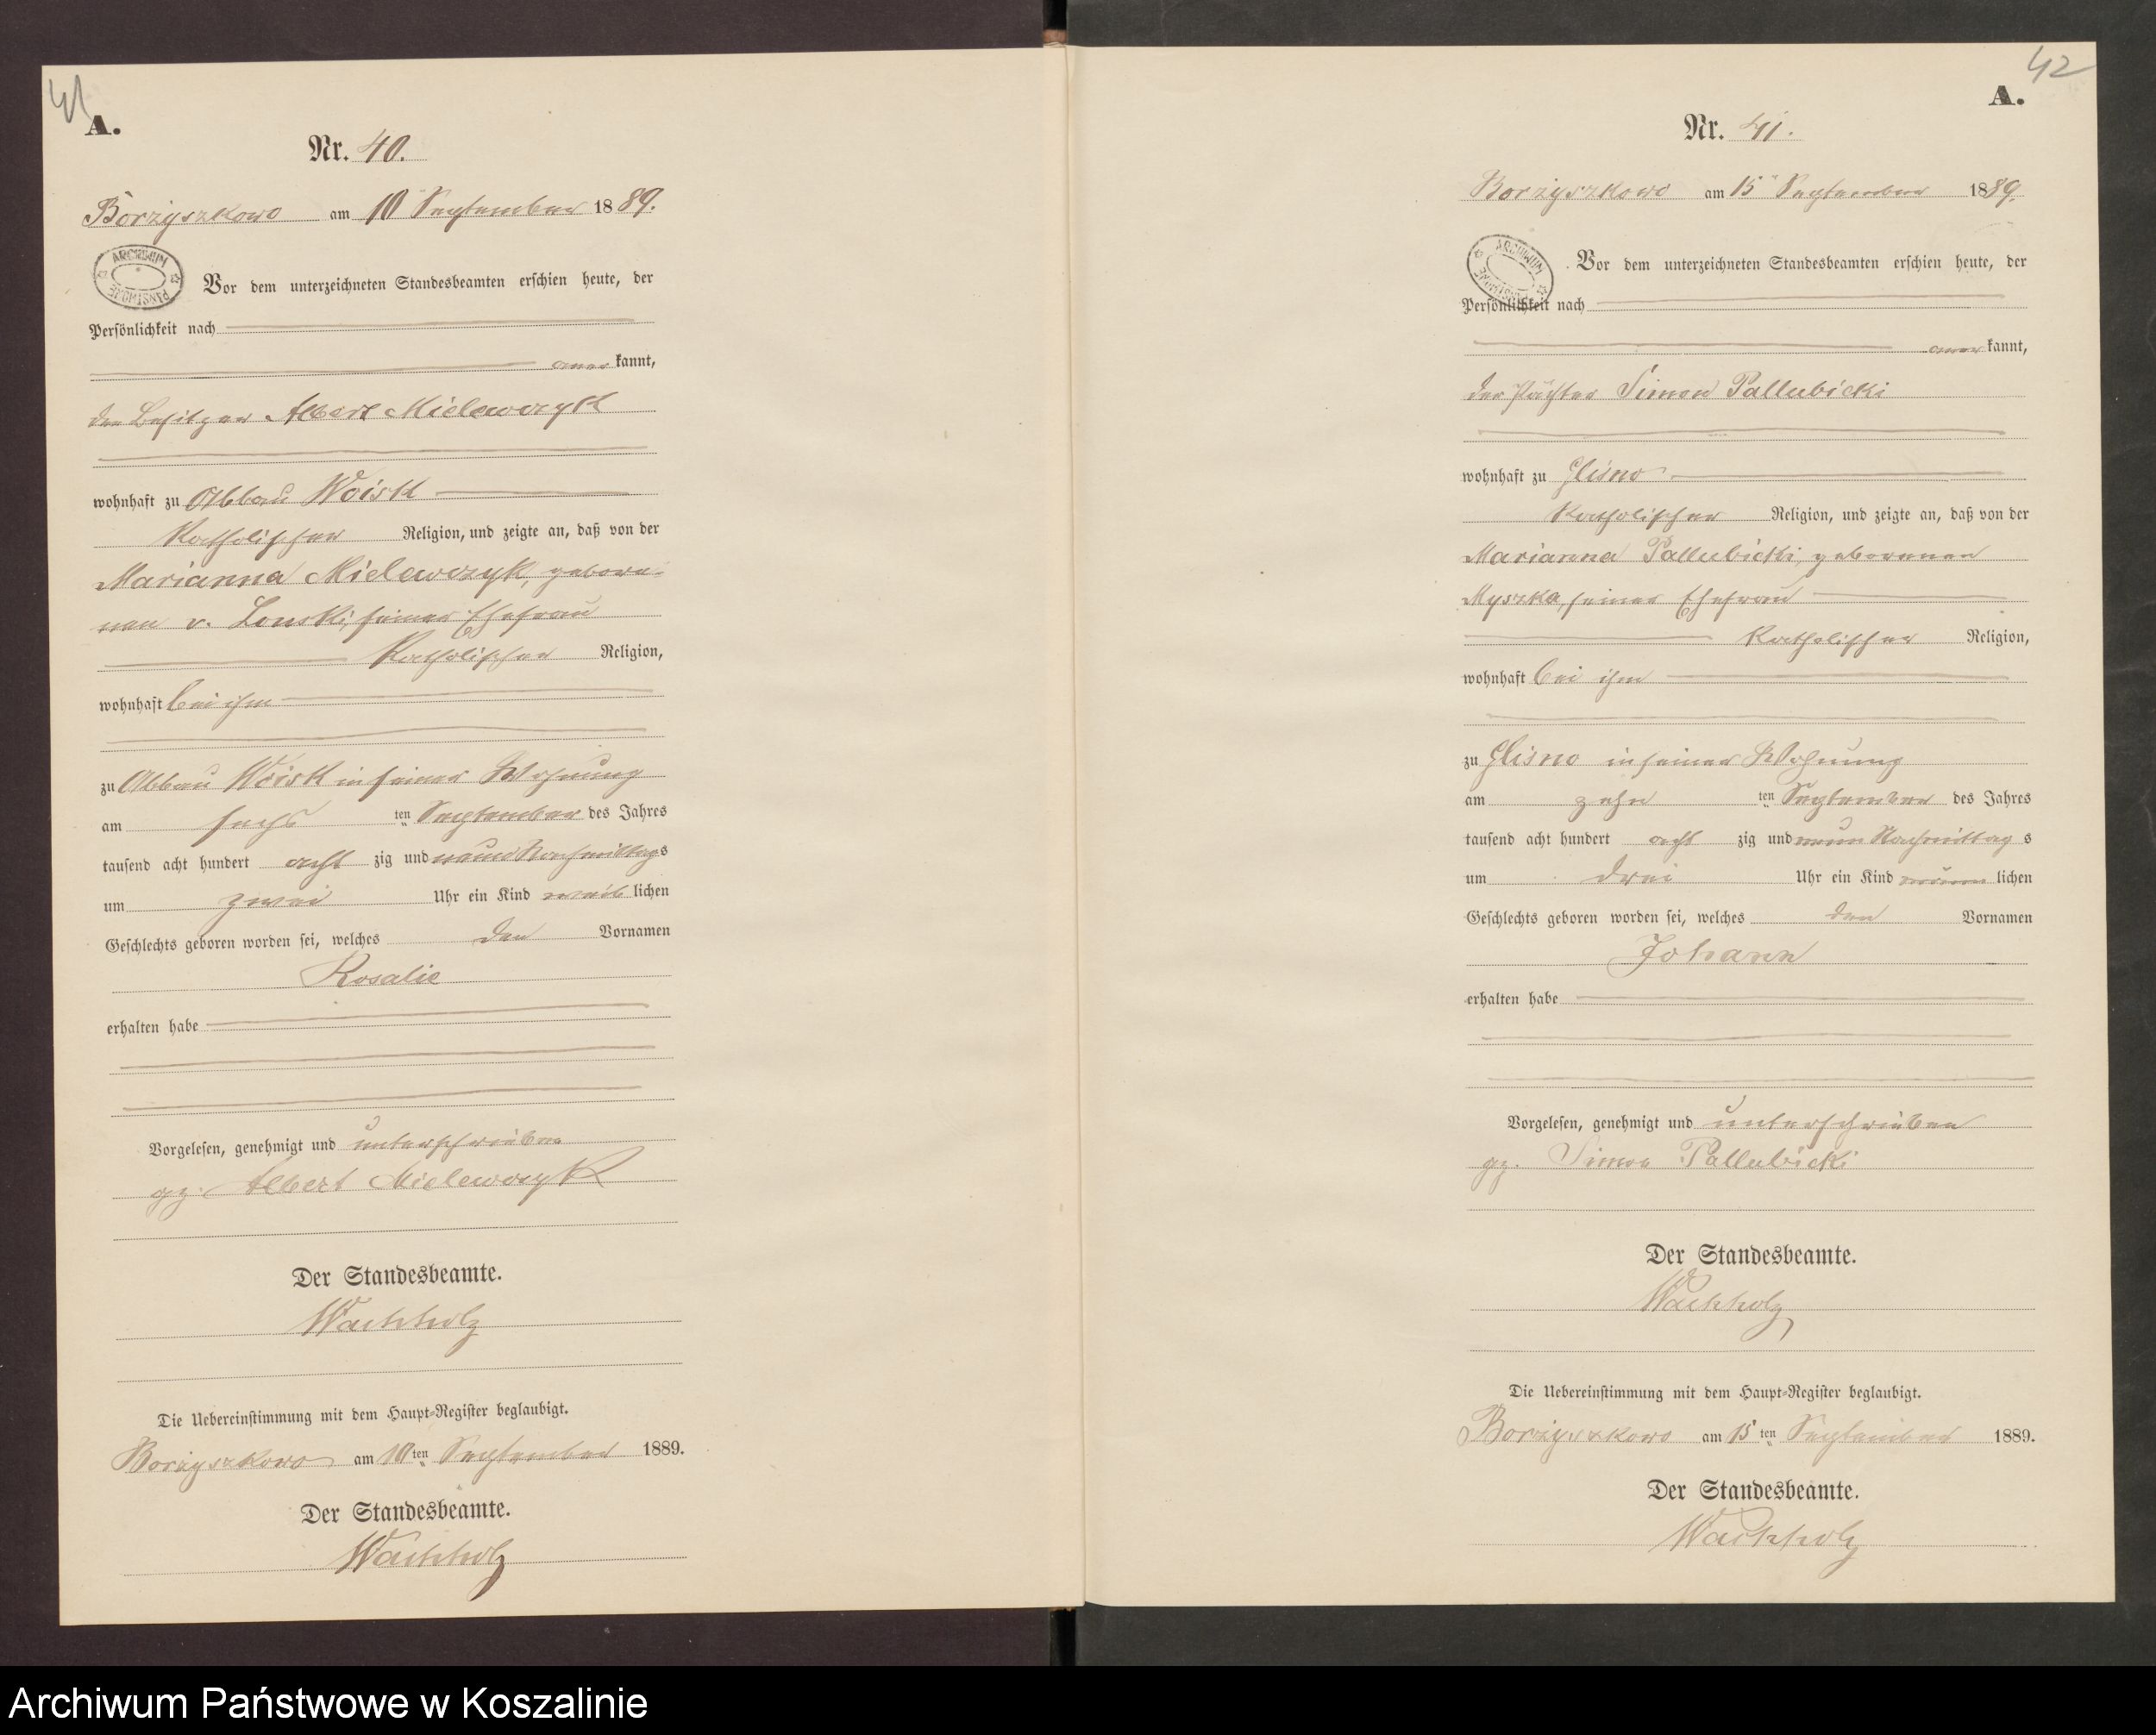 41
A.
Nr. 40.
Borzyszkowo am 10 September 1889.
ARCHIWUM PAŃSTWOWE
Vor dem unterzeichneten Standesbeamten erschien heute, der
Persönlichkeit nach
kannt,
der Besitzer Albert Mielewczyk
wohnhaft zu Abbau Woisk
Katholischer Religion, und zeigte an, daß von der
Marianna Mielewczyk, gebore-
nen v. Lonski, seiner Ehefrau
Katholischer Religion,
wohnhaft bei ihm
zu Abbau Woisk in seiner Wohnung
am sechs ten September des Jahres
tausend acht hundert acht zig und neun Nachmittags
um zwei Uhr ein Kind weiblichen
Geschlechts geboren worden sei, welches den Vornamen
Rosalie
erhalten habe
Vorgelesen, genehmigt und unterschrieben
gz. Albert Mielewczyk
Der Standesbeamte.
Wachholz
Die Uebereinstimmung mit dem Haupt-Register beglaubigt.
Borzyszkowo am 10ten September 1889.
Der Standesbeamte.
Wachholz
42
A.
Nr. 41.
Borzyszkowo am 15 September 1889.
ARCHIWUM PAŃSTWOWE
Vor dem unterzeichneten Standesbeamten erschien heute, der
Persönlichkeit nach
kannt,
der Pächter Simon Pallubicki
wohnhaft zu Glisno
Katholischer Religion, und zeigte an, daß von der
Marianna Pallubicki, geborenen
Myszka, seiner Ehefrau
Katholischer Religion,
wohnhaft bei ihm
zu Glisno in seiner Wohnung
am zehn ten September des Jahres
tausend acht hundert acht zig und neun Nachmittags
um drei Uhr ein Kind männlichen
Geschlechts geboren worden sei, welches den Vornamen
Johann
erhalten habe
Vorgelesen, genehmigt und unterschrieben
gz. Simon Pallubicki
Der Standesbeamte.
Wachholz
Die Uebereinstimmung mit dem Haupt-Register beglaubigt.
Borzyszkowo am 15ten September 1889.
Der Standesbeamte.
Wachholz
Archiwum Państwowe w Koszalinie